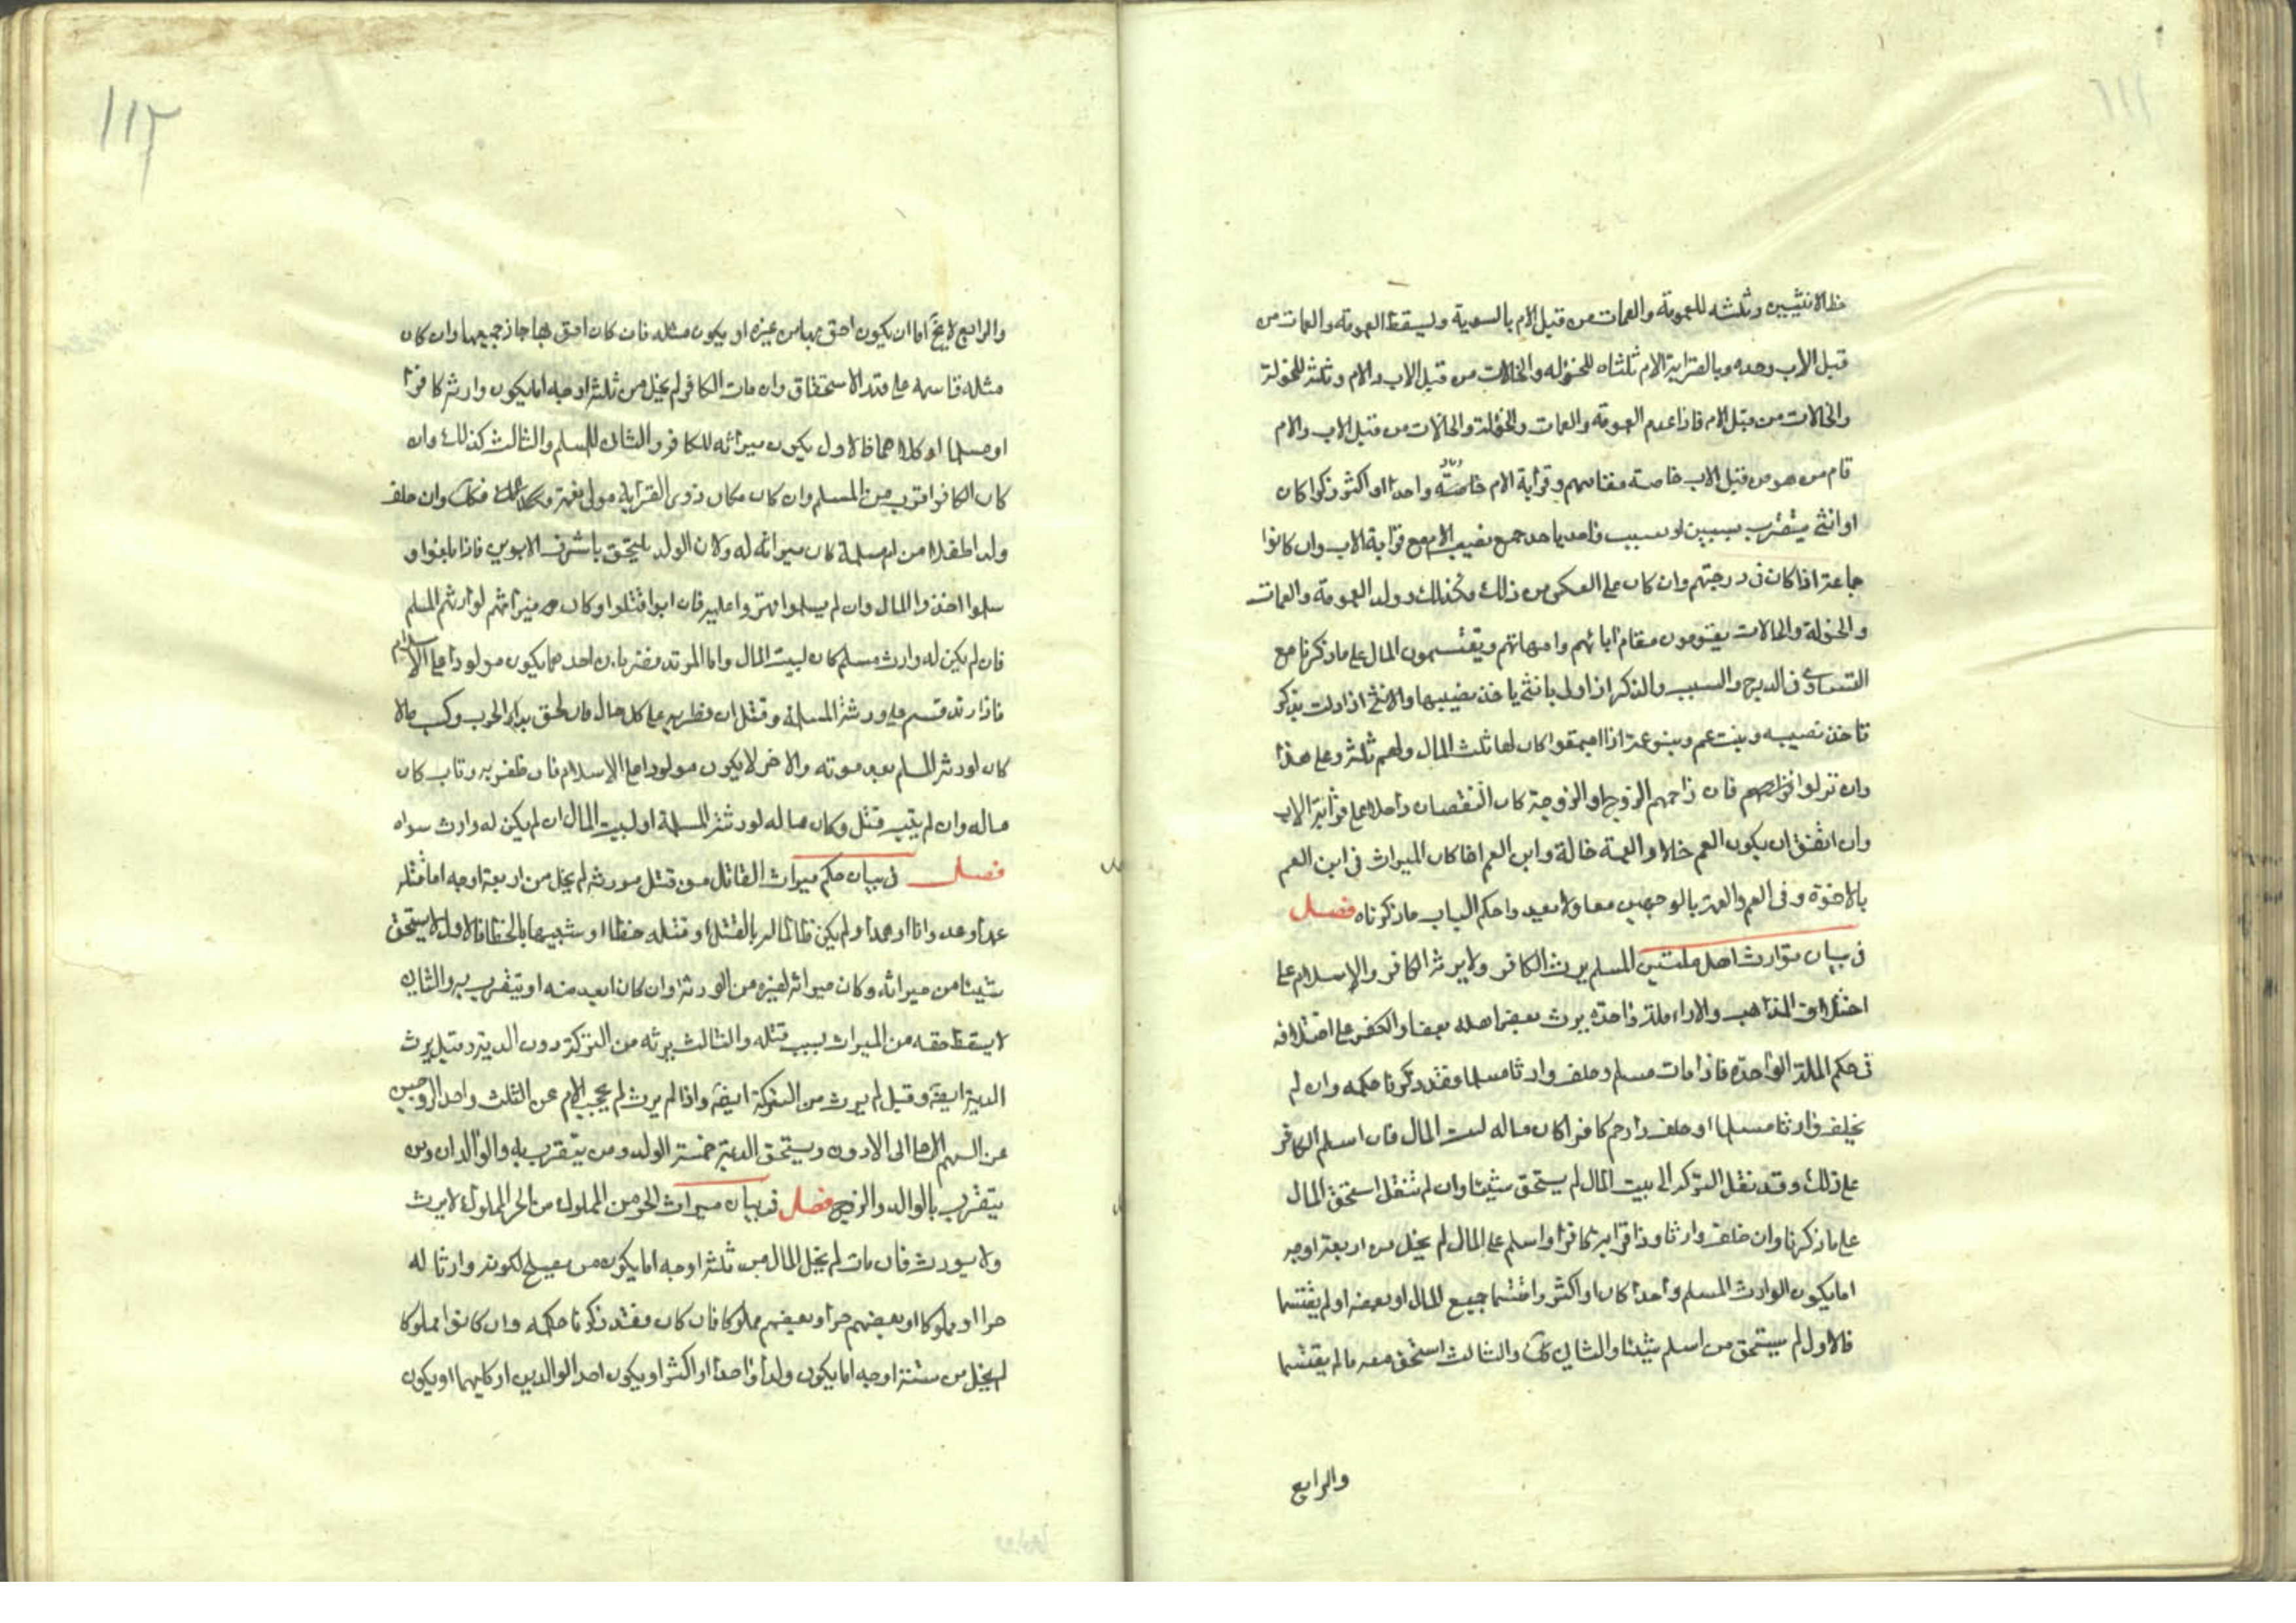 حظ الانثيين وثلثه للعمومة والعمات من قبل الام بالسوية ويسقط العمومة والعمات من
قبل الاب وحده وبالقرابة الام ثلثاه للخؤلة والخالات من قبل الاب والام وثلثه للخولة
والخالات من قبل الام فاذا عدم العمومة والعمات والخؤلة والخالات من قبل الاب والام
قام من هو من قبل الاب خاصة مقامهم وقرابة الام خاصة واحدا او اكثر ذكرا كان
او انثى يتقرب بسببين او بسبب واحد ياخذ جميع نصيب الام مع قرابة الاب وان كانوا
جماعة اذا كان في درجتهم وان كان على العكس من ذلك فكذلك وولد العمومة والعمات
والخولة والخالات يقومون مقام ابائهم وامهاتهم ويقتسمون المال على ما ذكرنا مع
التساوى فى الدرج والسبب والذكر اذا ولى بانثى ياخذ نصيبها والانثى اذا دلت بذكر
تاخذ نصيبه وبنت عم وبنو عمة اذا اجتمعوا كان لها ثلث المال ولهم ثلثه وعلى هذا
وان نزلوا فان زاحمهم الزوج او الزوجة كان النقصان داخلا على قرابة الاب
وان اتفق ان يكون العم خالا والعمة خالة وابن العم اخا كان الميراث فى ابن العم
بالاخوة وفى العم والعمة بالوجهين معا واحكم الباب ما ذكرناه فصل
فى بيان توارث اهل ملتين المسلم يرث الكافر ولا يرثه الكافر والاسلام على
اختلاف المذاهب والاراء ملة واحدة يرث بعض اهله بعضا والكفر على اختلافه
فى حكم الملة الواحدة فاذا مات مسلم وخلف وارثا مسلما فقد ذكرنا حكمه وان لم
يخلف وارثا مسلما او خلف ذا رحم كافرا كان ماله لبيت المال فان اسلم الكافر
على ذلك وقد نقل التركة الى بيت المال لم يستحق شيئا وان لم تنقل استحق المال
على ما ذكرنا وان خلف وارثا وذا قرابة كافرا واسلم على المال لم يخل من اربعة اوجه
اما يكون الوارث المسلم واحدا كان او اكثر واقتسما جميع المال او بعضه او لم يقتسما
فالاول لم يستحق من اسلم شيئا والثاني كك والثالث استحق معه ما لم يقتسما
والرابع
١١٢
والرابع لا يخ اما ان يكون احق بها من غيره او يكون مثله فان كان احق بها حاز جميعها وان كان
مثله قاسمه على قدر الاستحقاق وان مات الكافر لم يخل من ثلثة اوجه اما يكون وارثه كافرا
او مسلما او كلاهما فالاول يكون ميراثه للكافر والثاني للمسلم والثالث كذلك وان
كان الكافر اقرب من المسلم وان كان مكان ذوى القرابة مولى نعمة فكك وان خلف
ولدا طفلا من ام مسلمة كان ميراثه له ولان الولد يلحق باشرف الابوين فاذا بلغوا و
سلموا اخذوا المال وان لم يسلموا قهروا عليه فان ابوا قتلوا وكان ميراثهم لوارثهم المسلم
فان لم يكن له وارث مسلم كان لبيت المال واما المرتد فضربان احدهما يكون مولودا على الاسلام
فاذا ارتد قسم ماله ورثته المسلمة وقتل ان ظفر به على كل حال فان لحق بدار الحرب وكسب مالا
كان لورثته المسلم بعد موته والاخر لا يكون مولودا على الاسلام فان ظفر به وتاب كان
ماله وان لم يتب قتل وكان ماله لورثته المسلمة او لبيت المال ان لم يكن له وارث سواه
فصل فى بيان حكم ميراث القاتل من قتل مورثه لم يخل من اربعة اوجه اما قتله
عمدا وعدوانا او عمدا ولم يكن ظالما له بالقتل او قتله خطا او شبيها بالخطا فالاول لا يستحق
شيئا من ميراثه وكان ميراثه لغيره من الورثة وان كان ابعد منه او يتقرب به والثاني
لا يسقط حقه من الميراث بسبب قتله والثالث يرثه من التركة دون الدية وقيل يرث
الدية ايضا وقيل لم يرث من التركة ايضا واذا لم يرث لم يحجب الام عن الثلث واحد الزوجين
عن السهم الاعلى الى الادون ويستحق الدية خمسة الولد ومن يتقرب به والوالدان ومن
يتقرب بالوالد والزوج فصل فى بيان ميراث الحر من المملوك من الحر المملوك لا يرث
ولا يورث فان مات لم يخل المال من ثلثة اوجه اما يكون من يصلح لكونه وارثا له
حرا او مملوكا او بعضهم حرا وبعضهم مملوكا فان كان فقد ذكرنا حكمه وان كانوا مملوكا
لم يخل من ستة اوجه اما يكون ولدا واحدا او اكثر او يكون احد الوالدين او كليهما او يكون